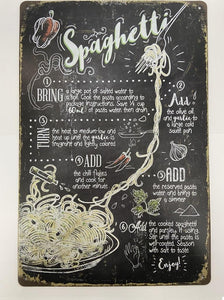 Spaghetti
1 BRING
a large pot of salted water to
action. Cook the pasta according to
package instructions. Save ¼ cup
60ml of pasta water then drain
2 Add
the olive oil
and garlic to
a large cold
sauté pan
TURN
the heat to medium low and
heat up until the garlic is
fragrant and lightly colored
4 ADD
the chili flakes
and cook for
another minute
5 ADD
the reserved pasta
water and bring to
a simmer
6 Add
the cooked spaghetti
and parsley. Stir
until the pasta is
well-coated. Season
with salt to taste.
Enjoy!